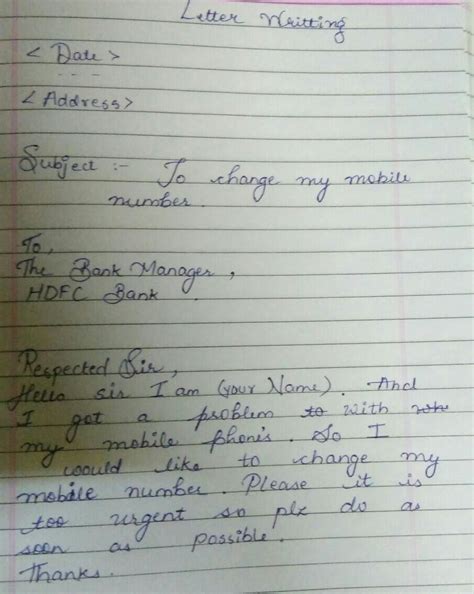 Letter Writting
< Date >
- - -
< Address>
Subject :- To change my mobile
number.
To,
The Bank Manager,
HDFC Bank .
Respected Sir,
Hello sir I am (your Name). And
I got a problem to with
my mobile phone's. So I
would like to change my
mobile number. Please it is
too urgent so plz do as
soon as possible.
Thanks.